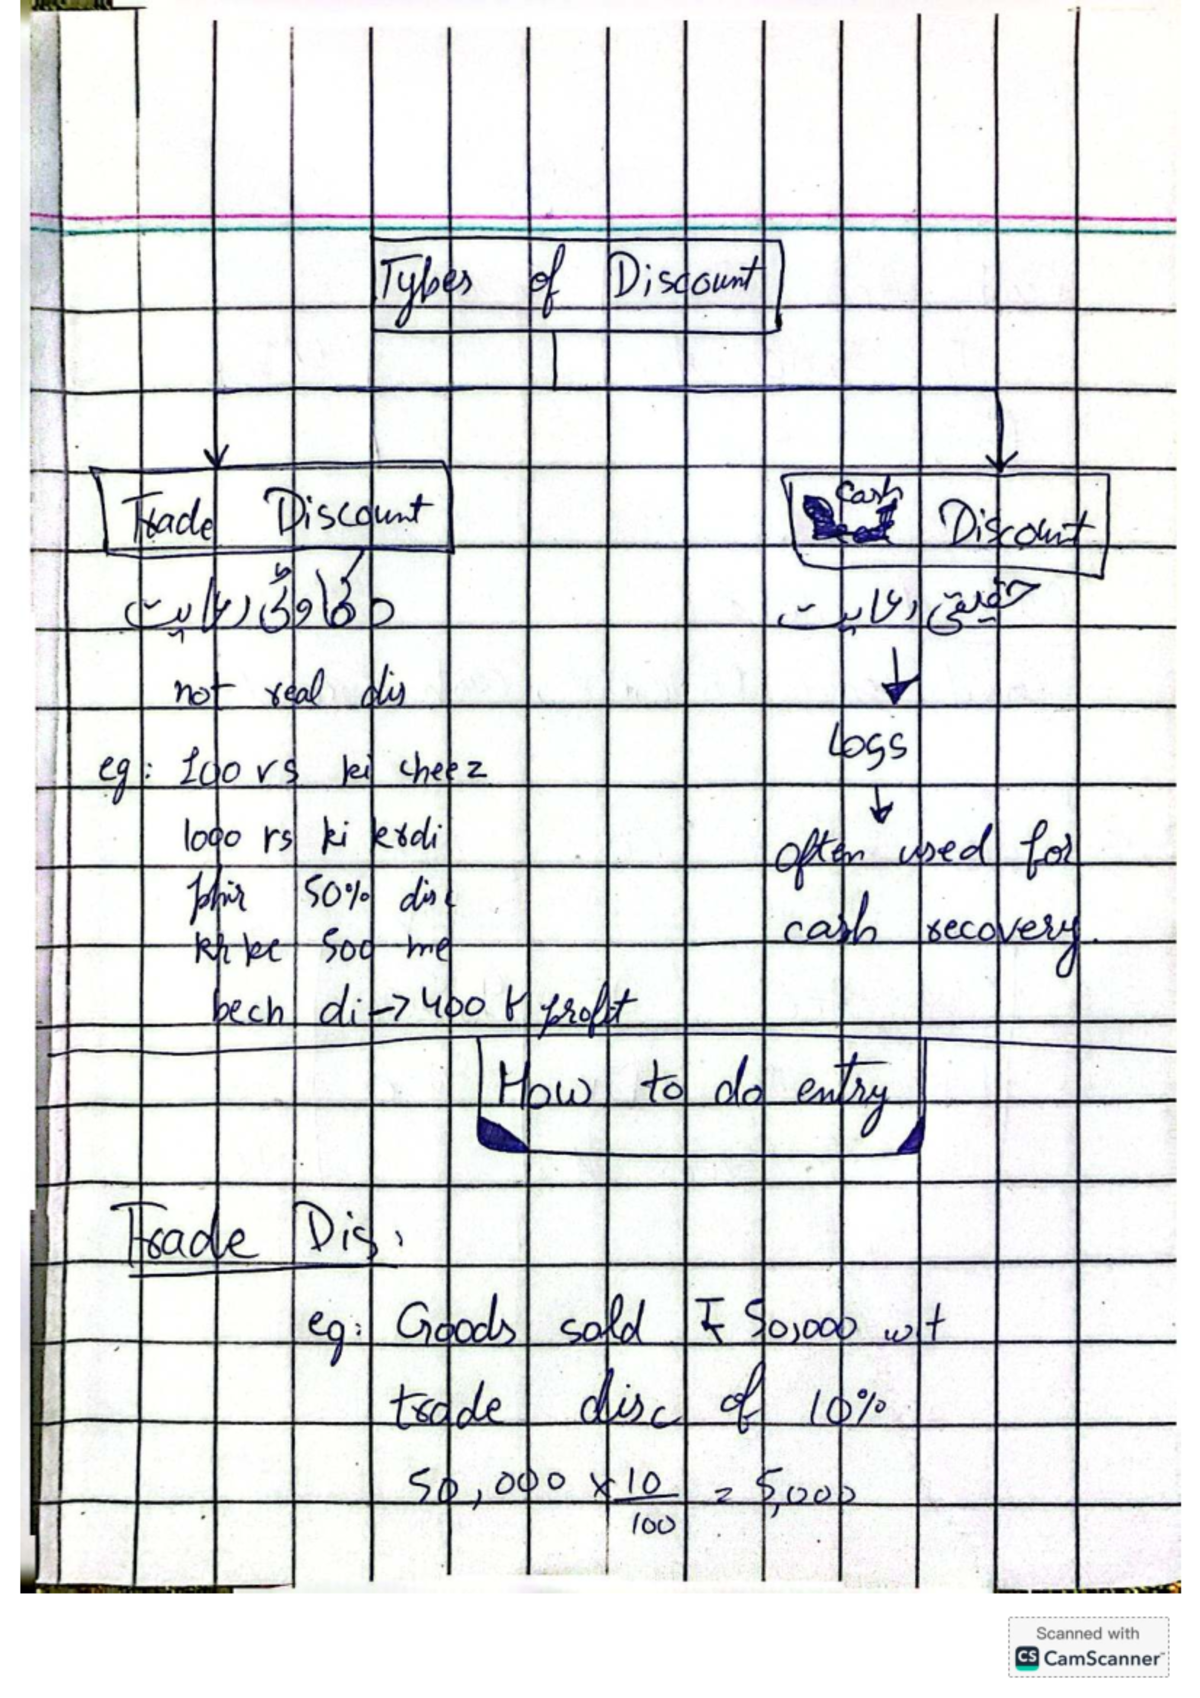 Types of Discount
Trade Discount
Cash Discount
دکھاوئی رعایت
حقیقی رعایت
not real dis
Loss
eg: 100 rs ki cheez
1000 rs ki krdi
often used for
phir 50% disc
cash recovery.
kr ke 500 me
bech di → 400 profit
How to do entry
Trade Dis.
eg: Goods sold ₹ 50,000 wt
trade disc of 10%
50,000 × 10/100 = 5,000
Scanned with
CS CamScanner